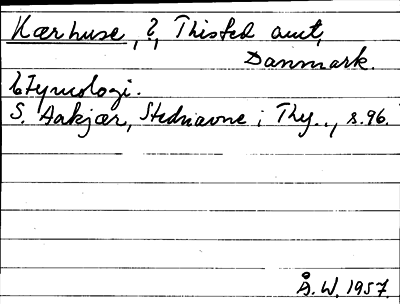 Kærhuse, ?, Thisted amt,
Danmark.
Etymologi.
S. Aakjær, Stednavne i Thy.., s.96.
Å.W. 1957.